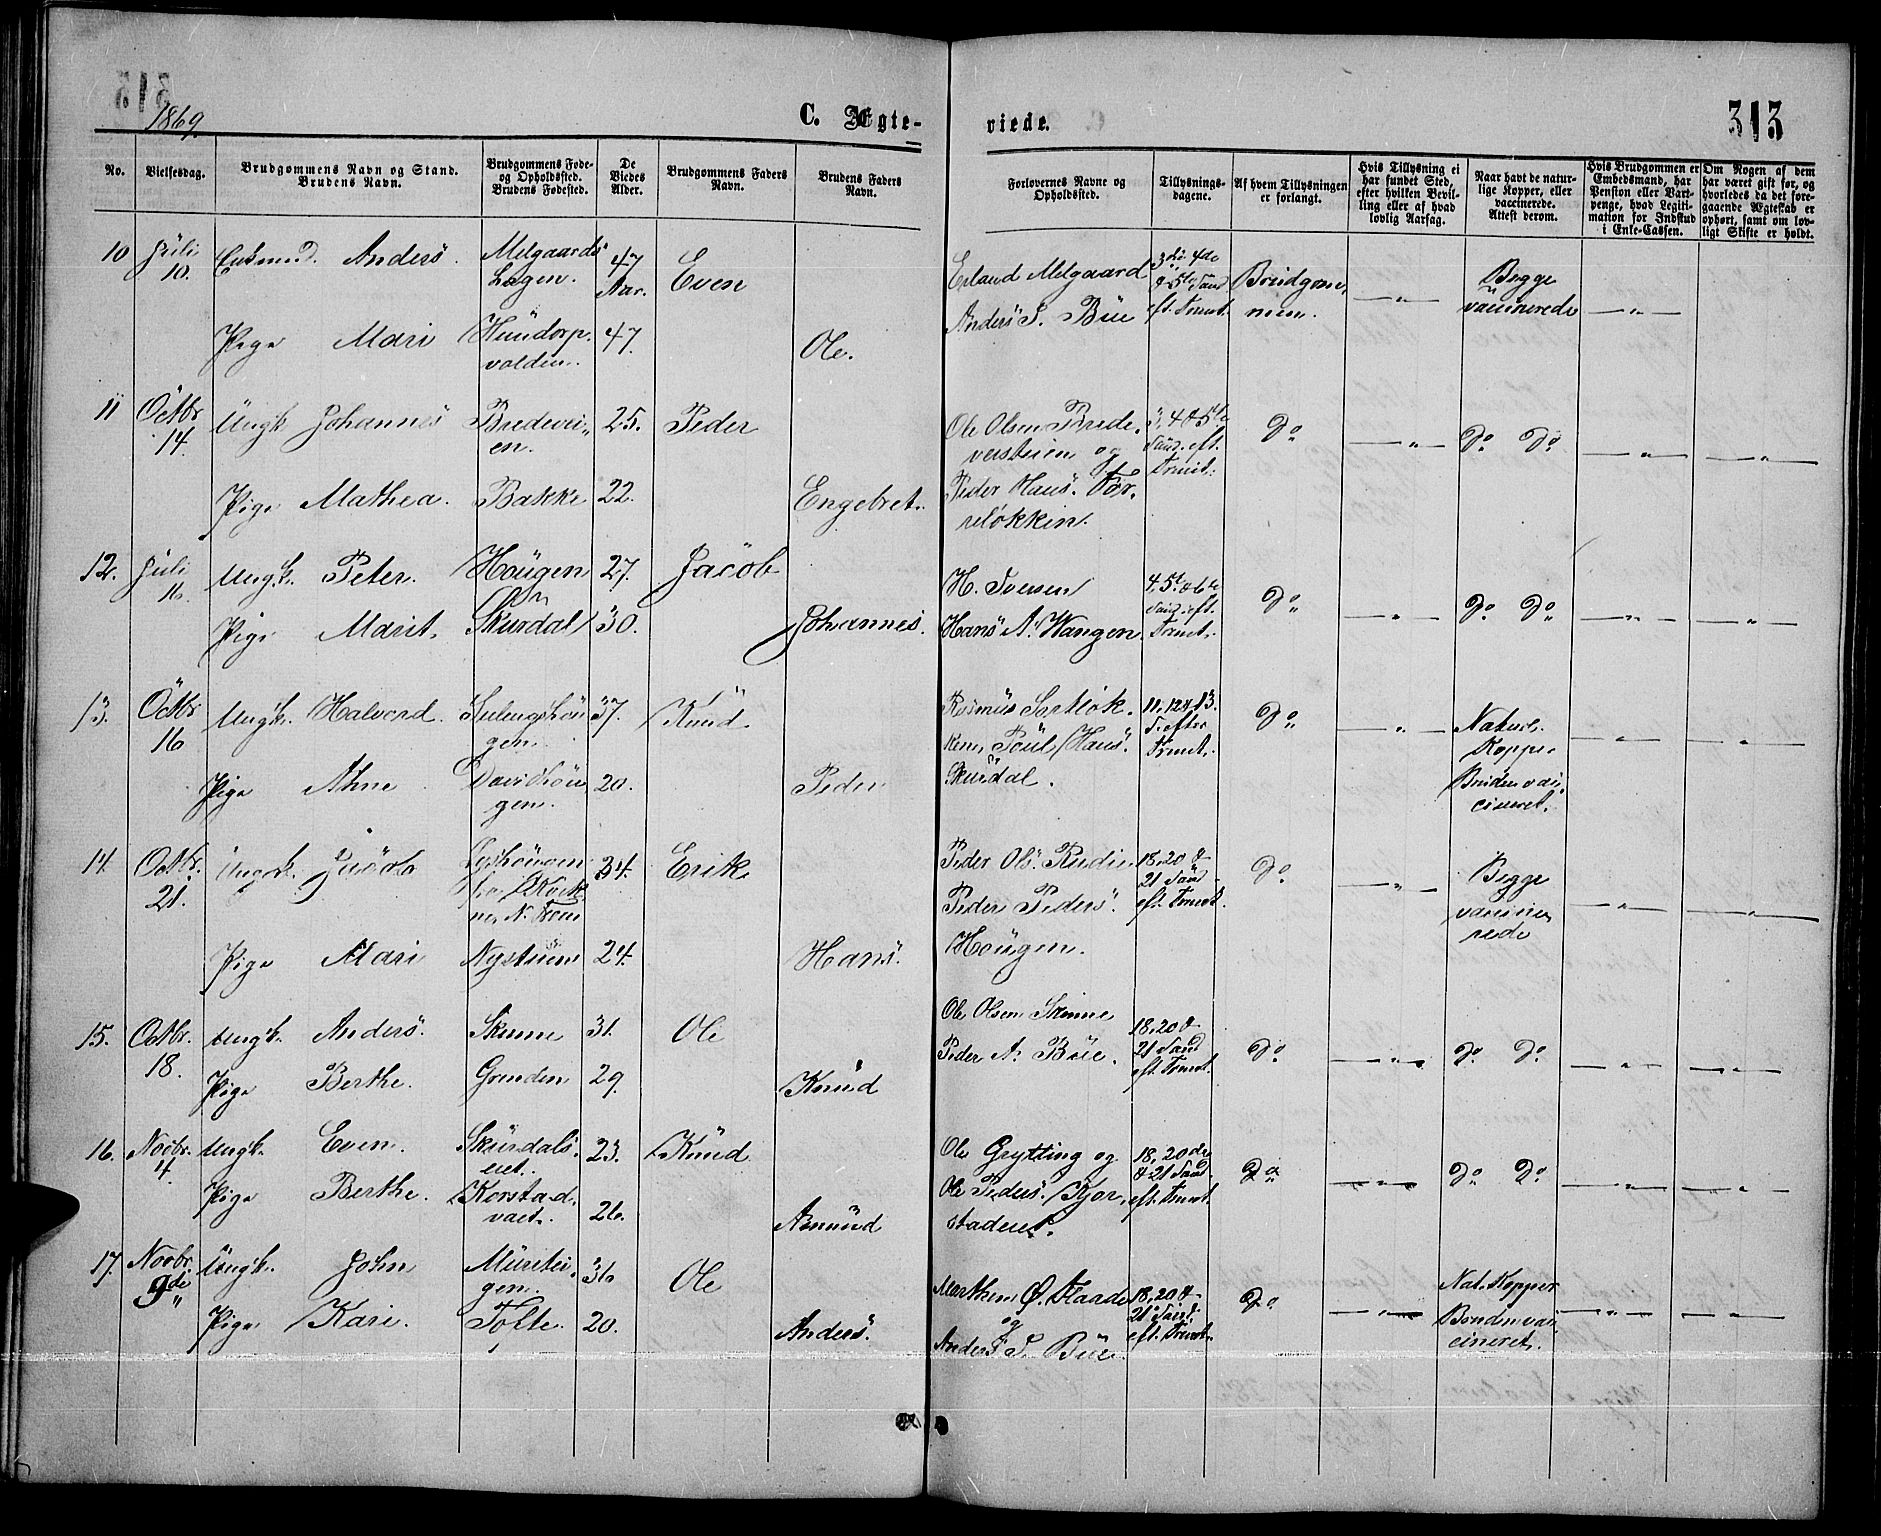 1869.
C. Ægte-
viede.
313
No.
Vielsesdag.
Brudgommens Navn og Stand.
Brudens Navn.
Brudgommens Føde-
og Opholdssted.
Brudens Fødested.
De
Viedes
Alder.
Brudgommens Faders
Navn.
Brudens Faders
Navn.
Forlovernes Navne og
Opholdssted.
Tillysnings-
dagene.
Af hvem Tillysningen
er forlangt.
Hvis Tillysning ei
har fundet Sted,
efter hvilken Bevil-
ling eller af hvad
lovlig Aarsag.
Naar havt de natur-
lige Kopper, eller
vaccinerede.
Attest derom.
Hvis Brudgommen er
Embedsmand, har
Pension eller Vart-
penge, hvad Legiti-
mation for Indskud
i Enke-Cassen.
Om Nogen af dem
har været gift før, og
hvorledes da det fore-
gaaende Ægteskab er
ophørt, samt om lov-
ligt Skifte er holdt.
10 Juli 10. Anders. Melgaards Løgen. 47 Aar. Even
Erland Melgaard Anders S. Bue 3die 4de & 5te Sønd eft. Trinit. Brudgom, men. — " — Begge vaccinerede — " —
Pige Mari Hundorp, volden. 47. Ole.
11 Octbr. 14. Ungk Johannes Bredevei, en. 25. Peder
Ole Olsen Brede, veistuen og Peder Hans. 4 & 5te Sønd. eft. Trinit. Do — " — Do Do — " — — " —
Pige Mathea. Bakke 22. Engebret.
reløkken.
12. Juli 16. Ungk. Peter. Hougen 27. Jacob
H. Iversen 4, 5te & 6te Sønd. eft. Trinit. Do — " — Do Do — " — — " —
Pige Marit. Skurdal 30. Johannes.
Hans A. Wangen
13. Octbr 16 Ungk. Halvord. 37. Knud
Rasmus 11, 12 & 13. S. efter Trinit. Do — " — Naturl. Kopper — " — — " —
Poul Hans. Skurdal.
Pige Ahne 20. Peder
Bruden vac, cineret.
14. Octbr. 21. Ungk. Jacob N. Fron 34. Erik
Peder Ols. Rudie Peder Peders. Hougen. 18, 20 & 21 Sønd eft. Trinit. Do — " — Begge vaccine, rede — " — — " —
Pige Mari Nystuen 24. Hans.
15. Octbr. 18. Ungk. Anders. Skurne 31. Ole
Ole Olsen Skurne Peder A. Bue. 18, 20 & 21 Sønd eft. Trinit. Do — " — Do Do — " — — " —
Pige Berthe. Grinden 29. Knud
16. Novbr. 4. Ungk. Even. Skurdals, eiet. 23. Knud
Ole Grytting og Ole Peders. Kjor, stadeiet. 18, 20de & 21 Sønd eft. Trinit. Do — " — Do Do — " — — " —
Pige Berthe. Korstad, vaet. 26. Amund
17. Novbr. 9de Ungk. John 36 Ole
Morthen Ø. Flaade og Anders S. Bue. 18, 20 & 21 Sønd. eft. Trinit. Do — " — Nat. Kopper — " — — " —
Pige Kari. Tofte. 20. Anders.
Bruden vac, cineret.